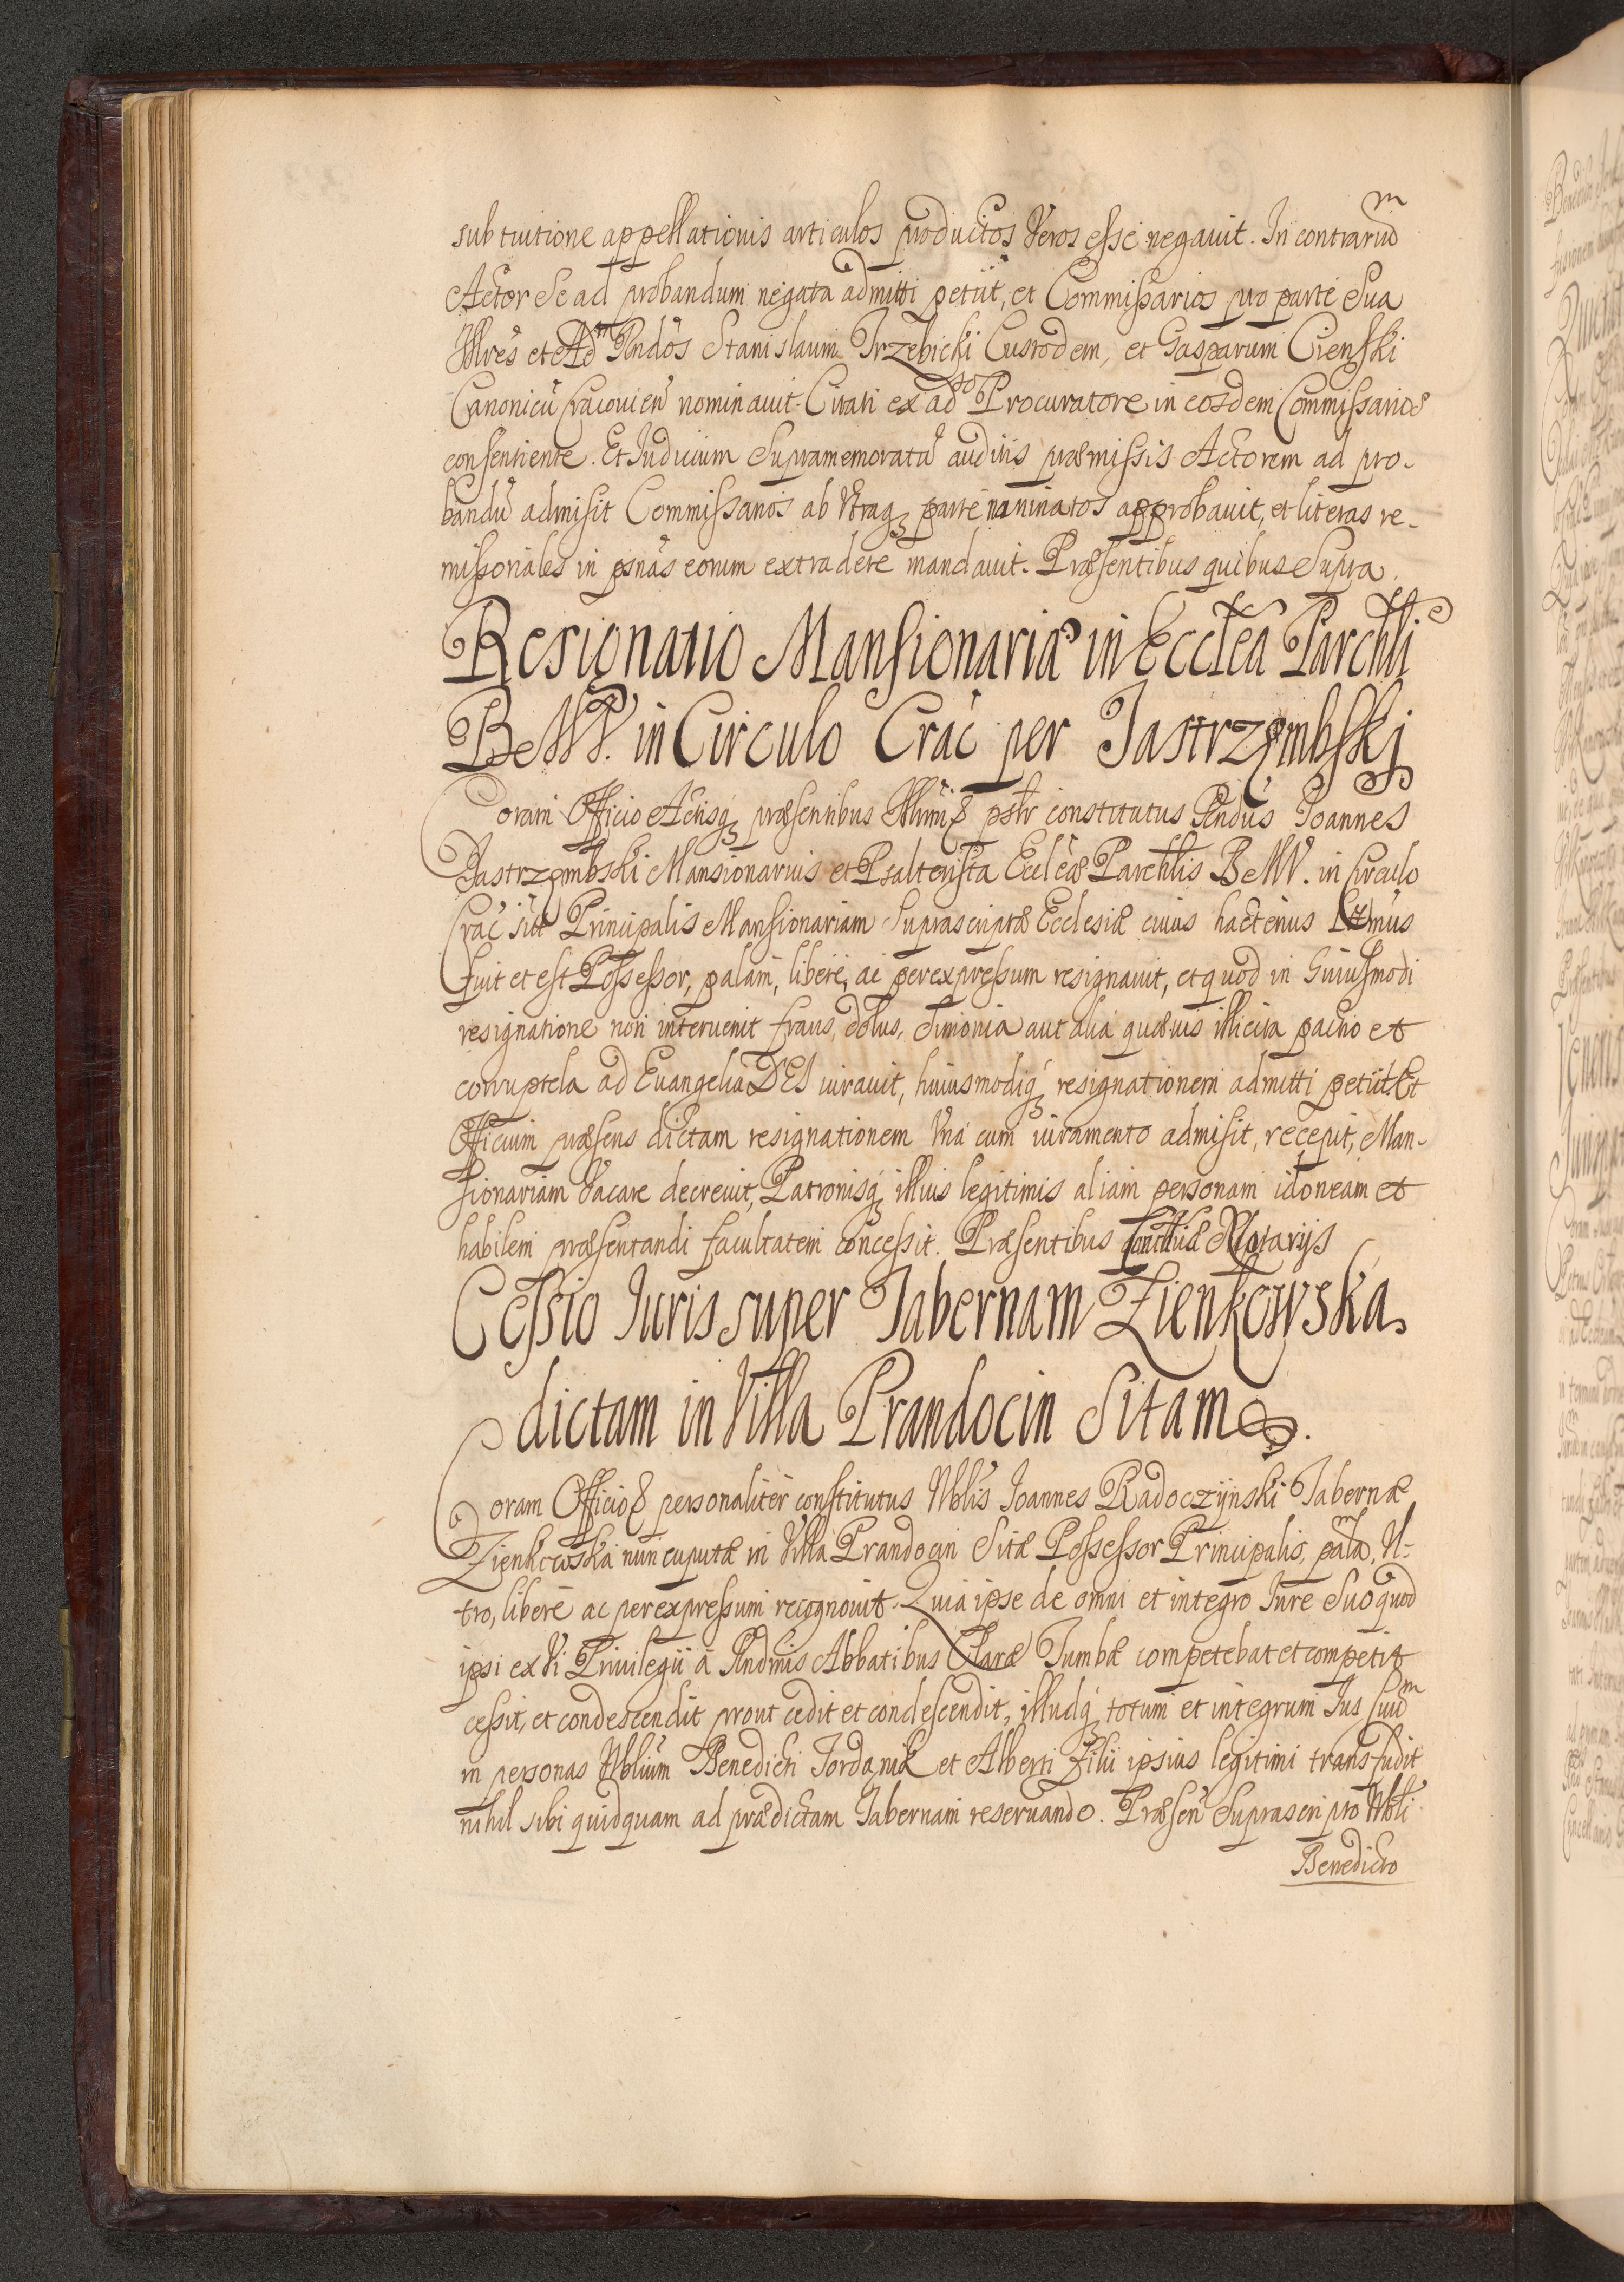 sub tuitione appellationis articulos productos Veros esse negauit. In contrariũ
Actor Se ad probandum negata admitti petiit, et Commissarios pro parte Sua
Illres et Ad Rndos Stanislaum Trzebicki Custodem, et Gasparum Cienski
Canonicũ Cracouien nominauit. Citati ex adso Procuratore in eosdem Commissarios
consentiente. Et Iudicium Supramemoratũ auditis præmissis Actorem ad pro-
bandũ admisit Commissarios ab Vtraq parte nominatos approbauit, et literas re-
missoriales in psnas eorum extradere mandauit. Præsentibus quibus Supra.
Resignatio Mansionariæ in Ecclea Parchli
B. M. V. in Circulo Crac per Jastrzęmbski
Coram Officio Actisq præsentibus Illrmi & pslr constitutus Rndus Ioannes
Jastrzęmbski Mansionarius et Psalterista Eccleæ Parchlis B. M. V. in Circulo
Crac siue Principalis Mansionariam Suprascriptæ Ecclesiæ cuius hactenus Ltmus
fuit et est Possessor, palam, libere, ac per expressum resignauit, et quod in huiusmodi
resignatione non interuenit fraus, dolus, Simonia aut alia quæuis illicita pactio et
corruptela ad Euangelia DEI iurauit, huiusmodiq resignationem admitti petiit. Et
Officium præsens dictam resignationem Vna cum iuramento admisit, recepit, Man-
sionariam Vacare decreuit, Patronisq illius legitimis aliam personam idoneam et
habilem præsentandi facultatem concessit. Præsentibus Notarijs
Cessio Iuris super Tabernam Zienkowska
dictam in Villa Prandocin Sitam.
Coram Officio & personaliter constitutus Nblis Ioannes Radoczynski Tabernæ
Zienkowska nuncupatæ in Villa Prandocin Sitæ Possessor Principalis, palã, Vl-
tro, libere ac per expressum recognouit. Quia ipse de omni et integro Iure Suo quod
ipsi ex Vi Priuilegii a Rndmis Abbatibus Claræ Tumbæ competebat et competit
cessit, et condescendit prout cedit et condescendit, illudq totum et integrum Ius suũ
in personas Nblium Benedicti Iordanik et Alberti Filii ipsius legitimi transfudit
nihil sibi quidquam ad prædictam Tabernam reseruando. Præsen Suprascripto Nbli
Benedicto